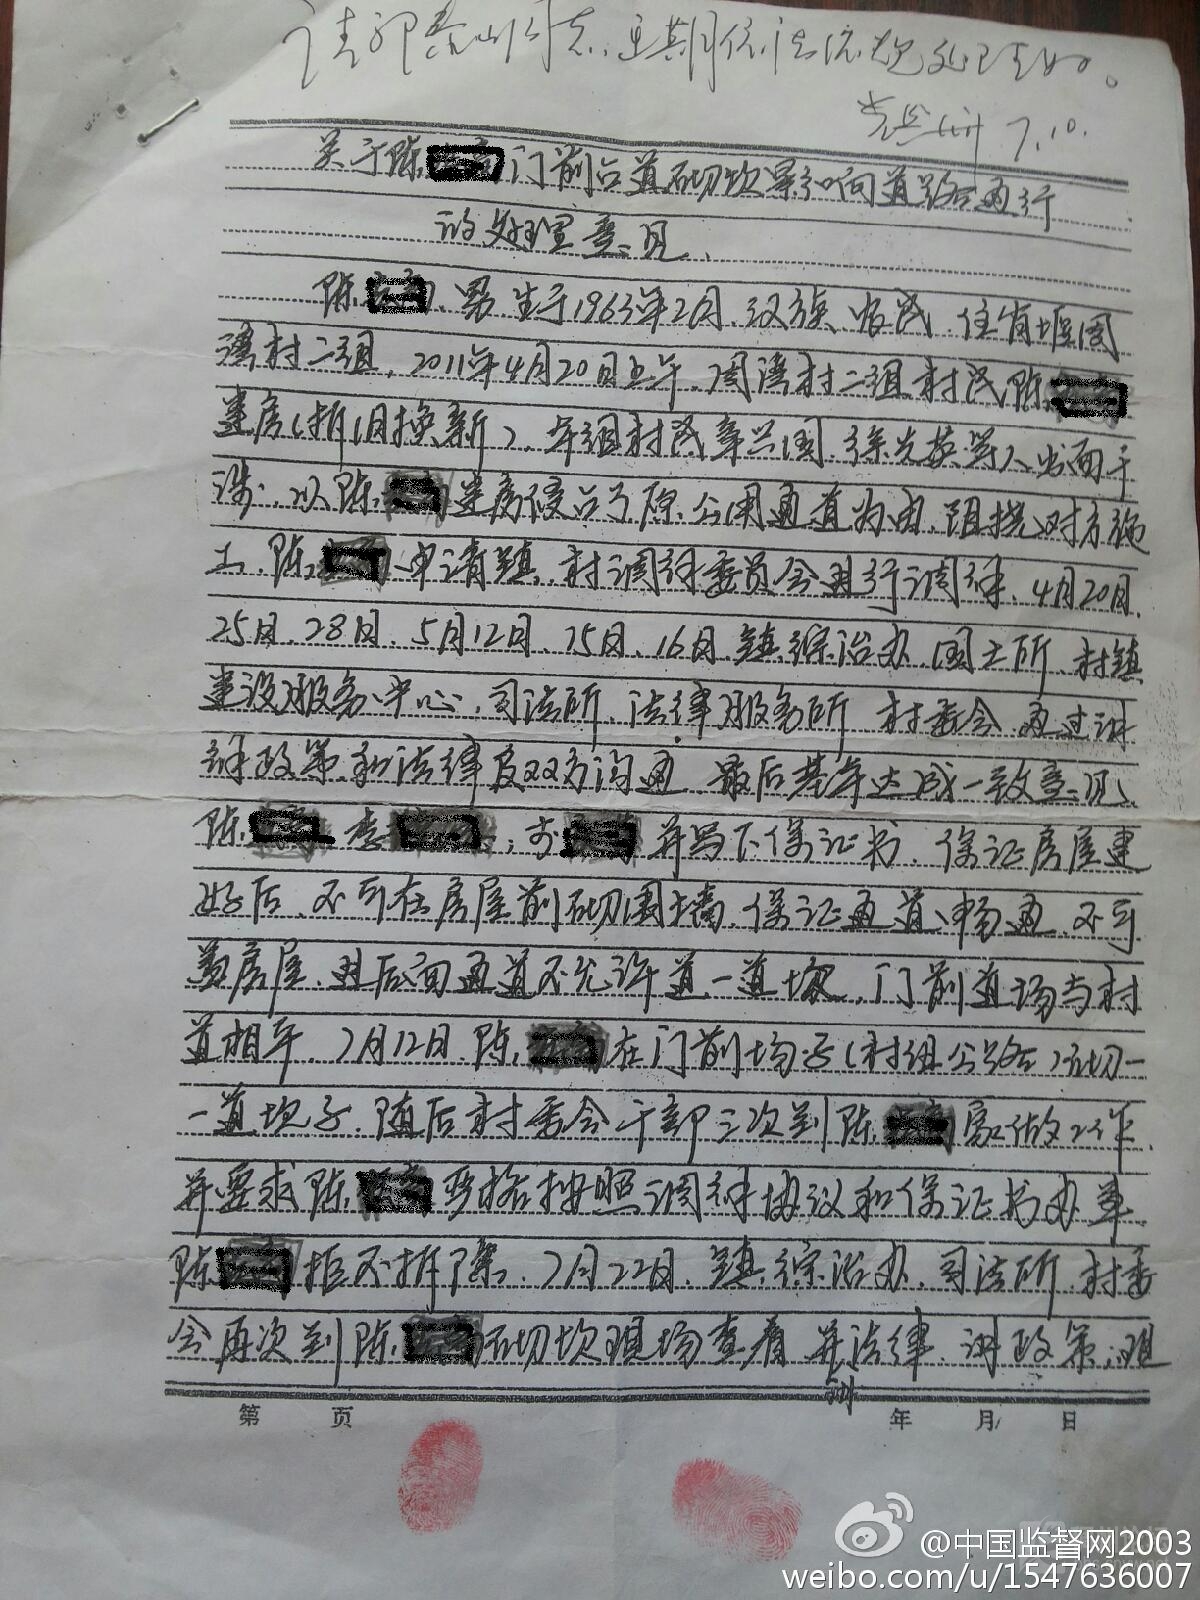 请郭泰山同志，五期间依法依规处理好。
7.10.
关于陈门前占道砌坎影响道路通行
的处理意见
陈，男 生于1963年2月，汉族 农民，住肖堰周
湾村二组，2011年4月20日上午，周湾村二组村民陈
建房(拆旧换新)，本组村民章兴国，徐先英等人出面干
涉，以陈建房侵占了原公用通道为由，阻挠对方施
工，陈申请镇、村调解委员会进行调解，4月20日、
25日、28日、5月12日、15日、16日，镇综治办 国土所 村镇
建设服务中心、司法所、法律服务所 村委会 通过讲
解政策和法律及双方沟通 最后基本达成一致意见，
陈 李，并写下保证书，保证房屋建
好后，不可在房屋前砌围墙，保证通道畅通，不可
盖房屋，进后面通道不允许道一道坡，门前道场与村
道相平，7月12日 陈在门前场子(村组公路)砌一
一道坎子，随后村委会干部三次到陈家做工作，
并要求陈严格按照调解协议和保证书办事，
陈拒不拆除，7月22日，镇综治办，司法所 村委
会再次到陈砌坎现场查看 并法律、讲政策，现
第 页 年 月 日
@中国监督网2003
weibo.com/u/1547636007